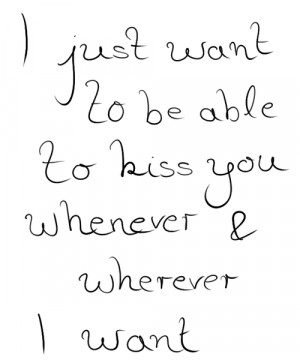 I just want
to be able
to kiss you
whenever &
wherever
I want